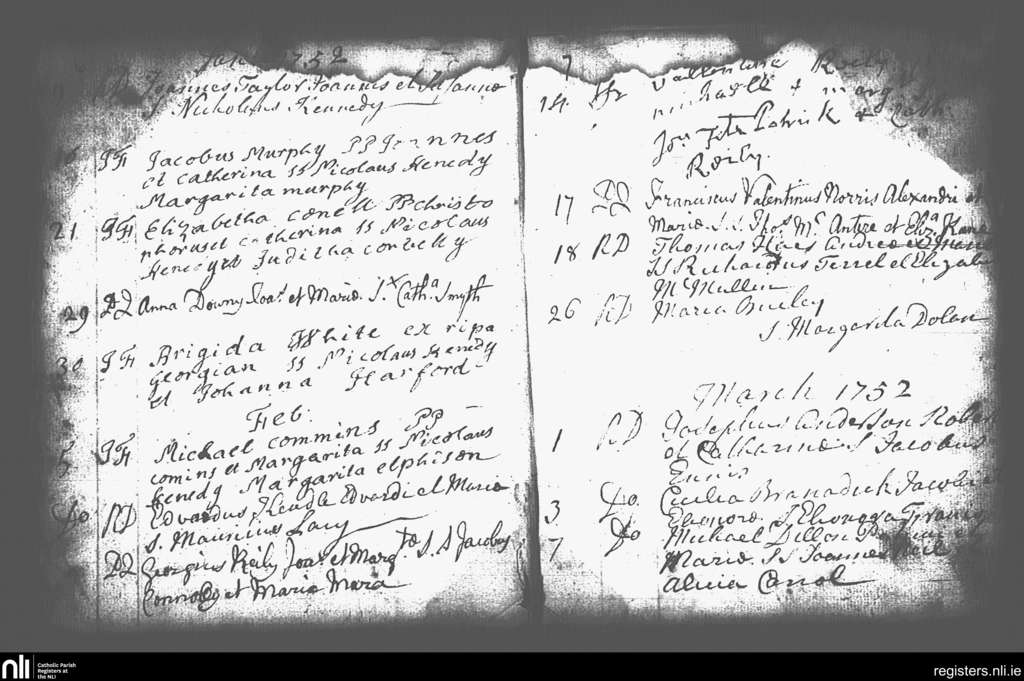 Jan 1752
RD Joannes Taylor Joannis et
S. Nicholaus Kennedy
16 JFf Jacobus Murphy PP Joannes
et catherina SS Nicolaus Kenedy
Margarita murphy
21 JFf Elizabetha conell PP christo
phorus et catherina SS Nicolaus
Kenedy et Juditha
29 DJ Anna Downy Joas. et Mariæ. S.x Catha. Smyth
30 JFf Brigida White ex ripa
Georgian SS Nicolaus Kenedy
et Johanna Harford
Feb.
5 JFf Michael commins PP
comins et Margarita SS Nicolaus
Kenedy Margarita elphison
Do RD Edvardus Edvardi et Mariæ
S. Mauritius Lacy
DJ Georgius Reily Joas. et Margtæ S.S Jacobus
Connoly et Maria Mara
7
14. Vallentine Reily
michaell & marg
Jon. Fitz Patrick & Cath.
Reily.
17 DJ Franciscus Valentinus Norris Alexandri et
Mariæ. S.S. Thos. Mc. Antire et Eliza. Kane
18 RD Thomas Andreæ et Mariæ
SS Richardus Terrel et Elizab
Mc Mullen
26 RD Maria
S. Margarita Dolan
March 1752
1 RD Josephus Anderson Rober
et Catharinæ S Jacobus
Ennis
3 Do. Cicilia Jacobi et
Eleonoræ. S
7 Do Michael Dillon
Mariæ. SS Joannes Neil
Alicia Carrol
nli
Catholic Parish
Registers at
the NLI
registers.nli.ie